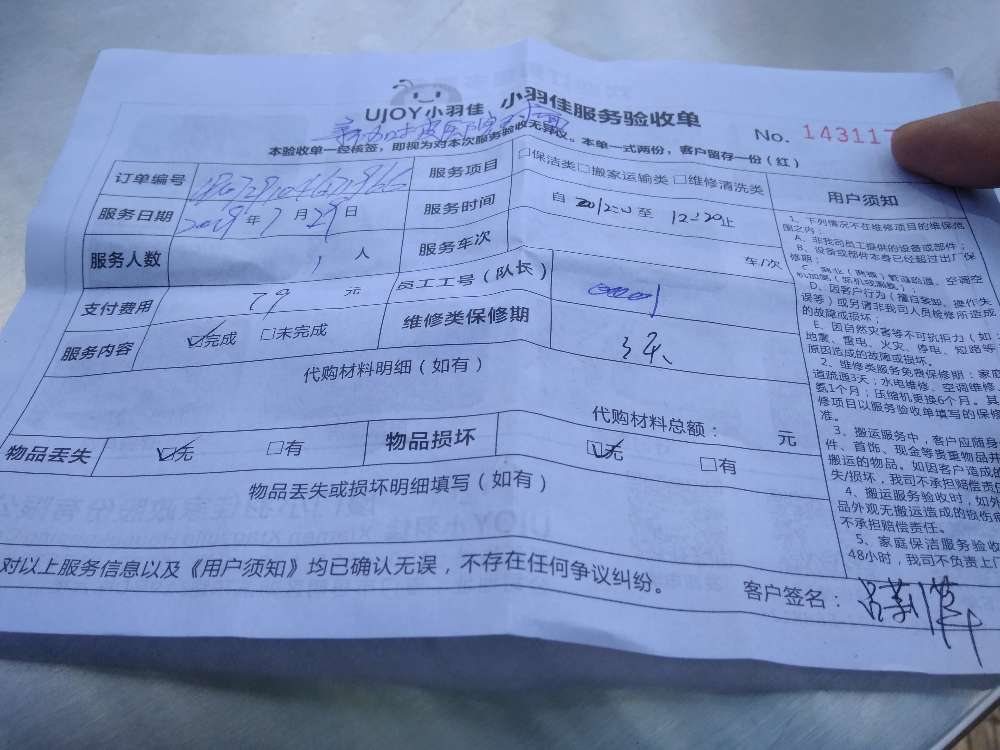 UJOY小羽佳 小羽佳服务验收单
No. 143117
本验收单一经核签，即视为对本次服务验收无异议。本单一式两份，客户留存一份（红）
订单编号
服务项目 □保洁类□搬家运输类□维修清洗类
服务日期 2019年7月29日
服务时间 自 至 止
服务人数 1 人
服务车次 车/次
支付费用 79 元
员工工号（队长）
服务内容 ☑完成 □未完成
维修类保修期 3天
代购材料明细（如有）
代购材料总额： 元
物品丢失 ☑无 □有
物品损坏 ☑无 □有
物品丢失或损坏明细填写（如有）
对以上服务信息以及《用户须知》均已确认无误，不存在任何争议纠纷。
客户签名：
用户须知
1、下列情况不在维修项目的维保范
围之内：
A、非我司员工提供的设备或部件；
B、设备或部件本身已经超过出厂保
修期；
D、因客户行为（擅自装卸、操作失
误等）或另请非我司人员检修所造成
的故障或损坏；
E、因自然灾害等不可抗拒力（如：
地震、雷电、火灾、停电、短路等
原因造成的故障或损坏。
2、维修类服务免费保修期：家庭
道疏通3天；水电维修、空调维修、
氨1个月；压缩机更换6个月。其
修项目以服务验收单填写的保修
准。
3、搬运服务中，客户应随身
件、首饰、现金等贵重物品并
搬运的物品。如因客户造成
失/损坏，我司不承担赔偿责任
4、搬运服务验收时，如外
品外观无搬运造成的损伤
不承担赔偿责任。
5、家庭保洁服务验收
48小时，我司不负责上门